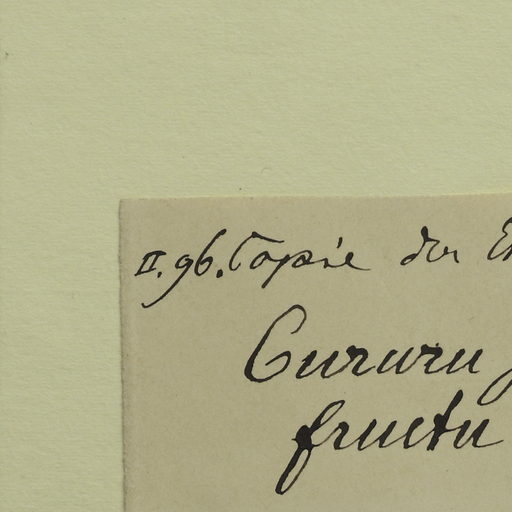 II.96. Copie der
Cururu
fructu